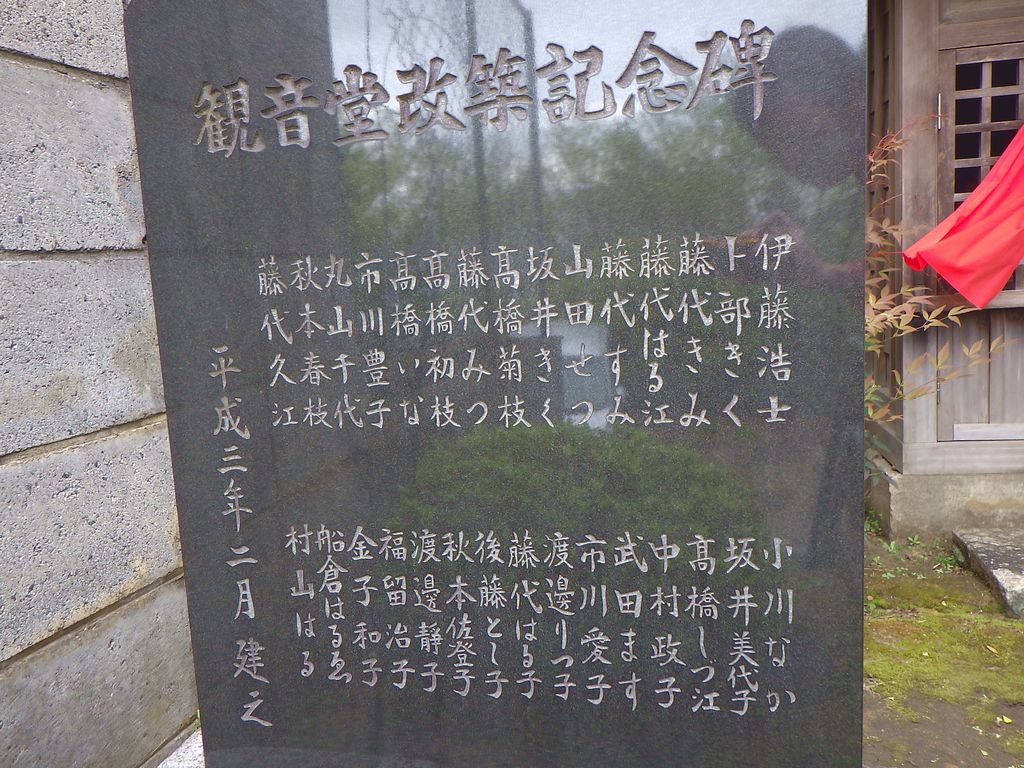 観音堂改築記念碑
伊藤浩士
卜部きく
藤代きみ
藤代はる江
藤代すみ
山田せつ
坂井きく
髙橋菊枝
藤代みつ
髙橋初枝
髙橋いな
市川豊子
丸山千代
秋本春枝
藤代久江
小川なか
坂井美代子
髙橋しづ江
中村政子
武田ます
市川愛子
渡邊りつ子
藤代はる子
後藤とし子
秋本佐登子
渡邊靜子
福留治子
金子和子
船倉はるゑ
村山はる
平成三年二月建之